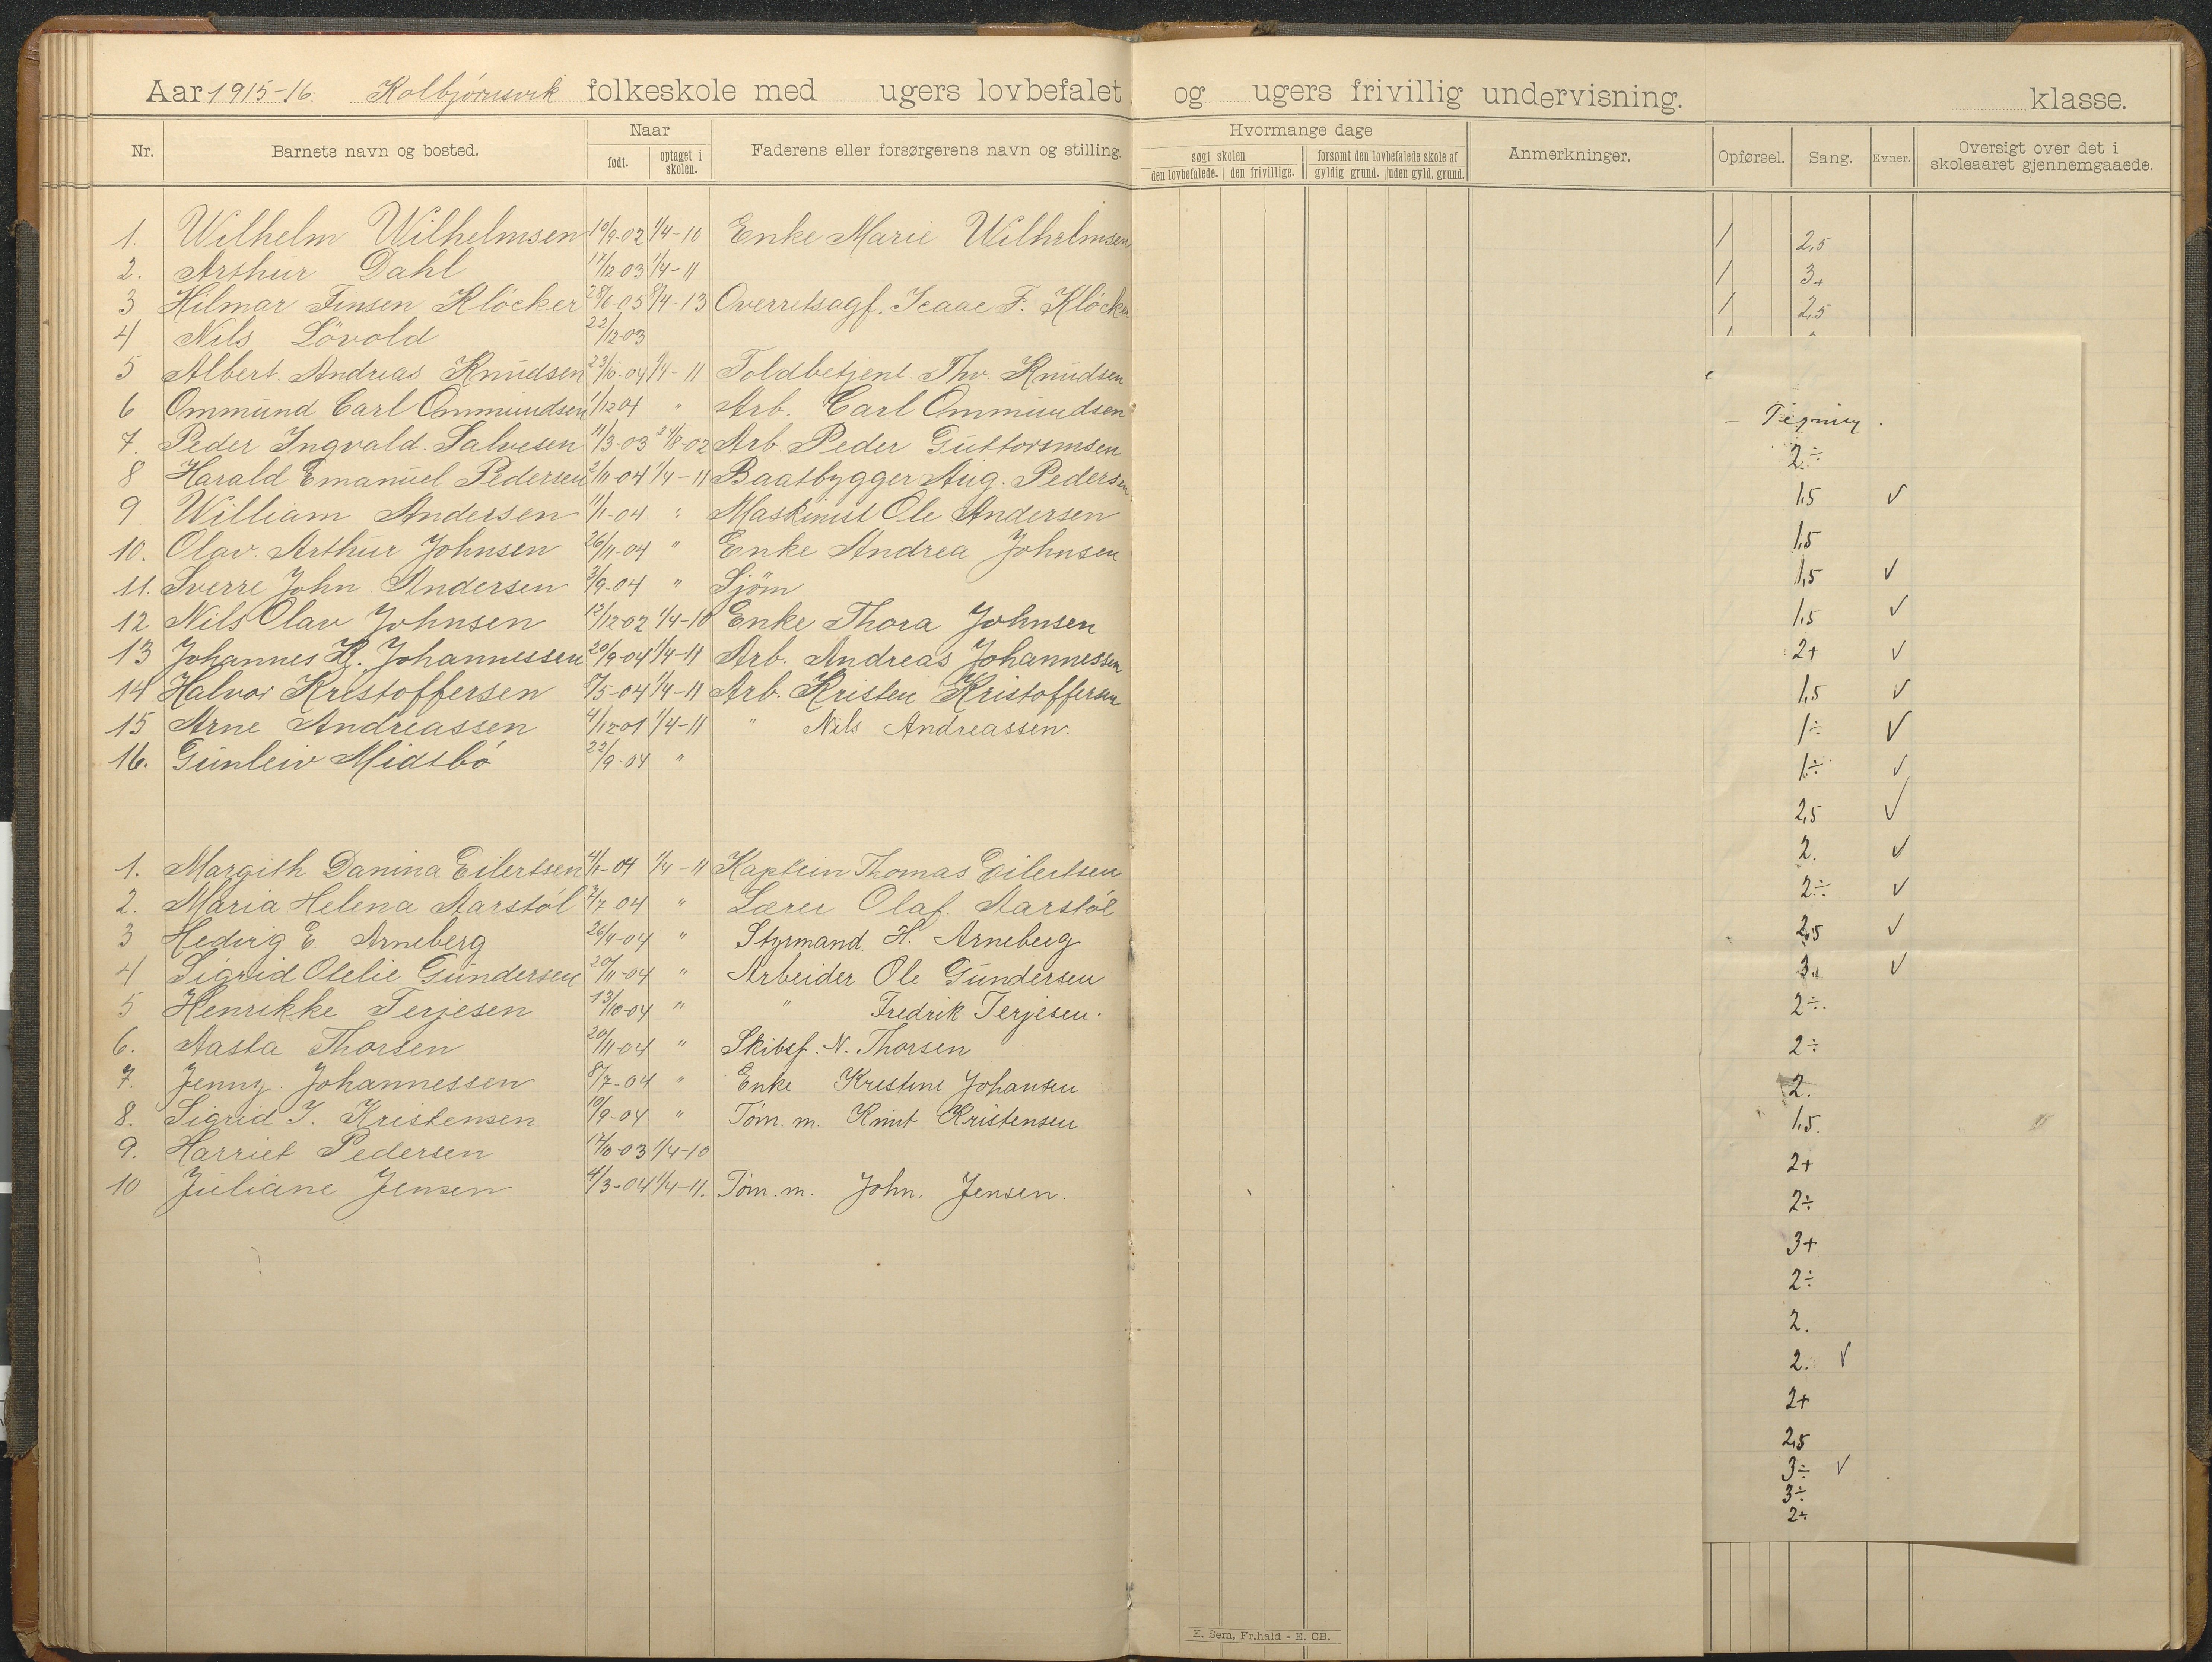 Aar 1915-16. Kolbjørnsvik folkeskole med ugers lovbefalet og ugers frivillig undervisning. klasse.
Nr. Barnets navn og bosted. Naar født. optaget i skolen. Faderens eller forsørgerens navn og stilling. Hvormange dage søgt skolen den lovbefalede. den frivillige. forsømt den lovbefalede skole af gyldig grund. uden gyld. grund. Anmerkninger. Opførsel. Sang. Evner. Oversigt over det i skoleaaret gjennemgaaede.
1. Wilhelm Wilhelmsen 10/9-02 1/4-10 Enke Marie Wilhelmsen / 2,5
2. Arthur Dahl 17/12-03 1/4-11 / 3+
3 Hilmar Finsen Kløcker 28/6-05 8/4-13 Overretsagf. Isaac F. Kløcker / 2,5
4 Nils Lövold 22/12-03
5 Albert Andreas Knudsen 23/10-04 1/4-11 Toldbetjent Thv. Knudsen
6 Ommund Carl Ommundsen 1/12 04 " Arb. Carl Ommundsen
7. Peder Ingvald Salvesen 11/3-03 24/8-02 Arb. Peder Guttormsen
8 Harald Emanuel Pedersen 2/11-04 1/4-11 Baatbygger Aug. Pedersen
9 William Andersen 11/1-04 " Maskinist Ole Andersen
10. Olav Arthur Johnsen 26/11-04 " Enke Andrea Johnsen
11. Sverre John Andersen 3/9-04 " Sjøm
12. Nils Olav Johnsen 12/12-02 1/4-10 Enke Thora Johnsen
13 Johannes H. Johannessen 20/9-04 1/4-11 Arb. Andreas Johannessen
14 Halvor Kristoffersen 5/5-04 1/4-11 Arb. Kristen Kristoffersen
15 Arne Andreassen 4/12-01 1/4-11 " Nils Andreassen.
16. Gunleiv Midtbö 22/9-04 "
1. Margith Danina Eilertsen 4/1-04 1/4-11 Kaptein Thomas Eilertsen
2. Maria Helena Aarstøl 2/7 04 " Lærer Olaf Aarstøl
3 Hedvig E. Arneberg 26/9-04 " Styrmand H. Arneberg
4 Sigrid Olelie Gundersen 20/11-04 " Arbeider Ole Gundersen
5 Henrikke Terjesen 13/10-04 " " Fredrik Terjesen.
6. Aasta Thorsen 20/11-04 " Skibsf. N. Thorsen
7. Jenny Johannessen 8/7-04 " Enke Kristine Johansen
8. Sigrid J. Kristensen 10/9-04 " Tøm. m. Knut Kristensen
9. Harriet Pedersen 17/10-03 1/4-10
10 Juliane Jensen 4/3-04 1/4-11. Tøm. m. John. Jensen.
– Tegning.
2÷
1,5 √
1,5
1,5 √
1,5 √
2+ √
1,5 √
1÷ √
1÷ √
2,5 √
2. √
2÷ √
2,5 √
3+ √
2÷
2÷
2.
1,5.
2+
2÷
3+
2÷
2.
2. √
2+
2,5
3÷ √
3÷
2÷
E. Sem, Fr.hald - E. CB.